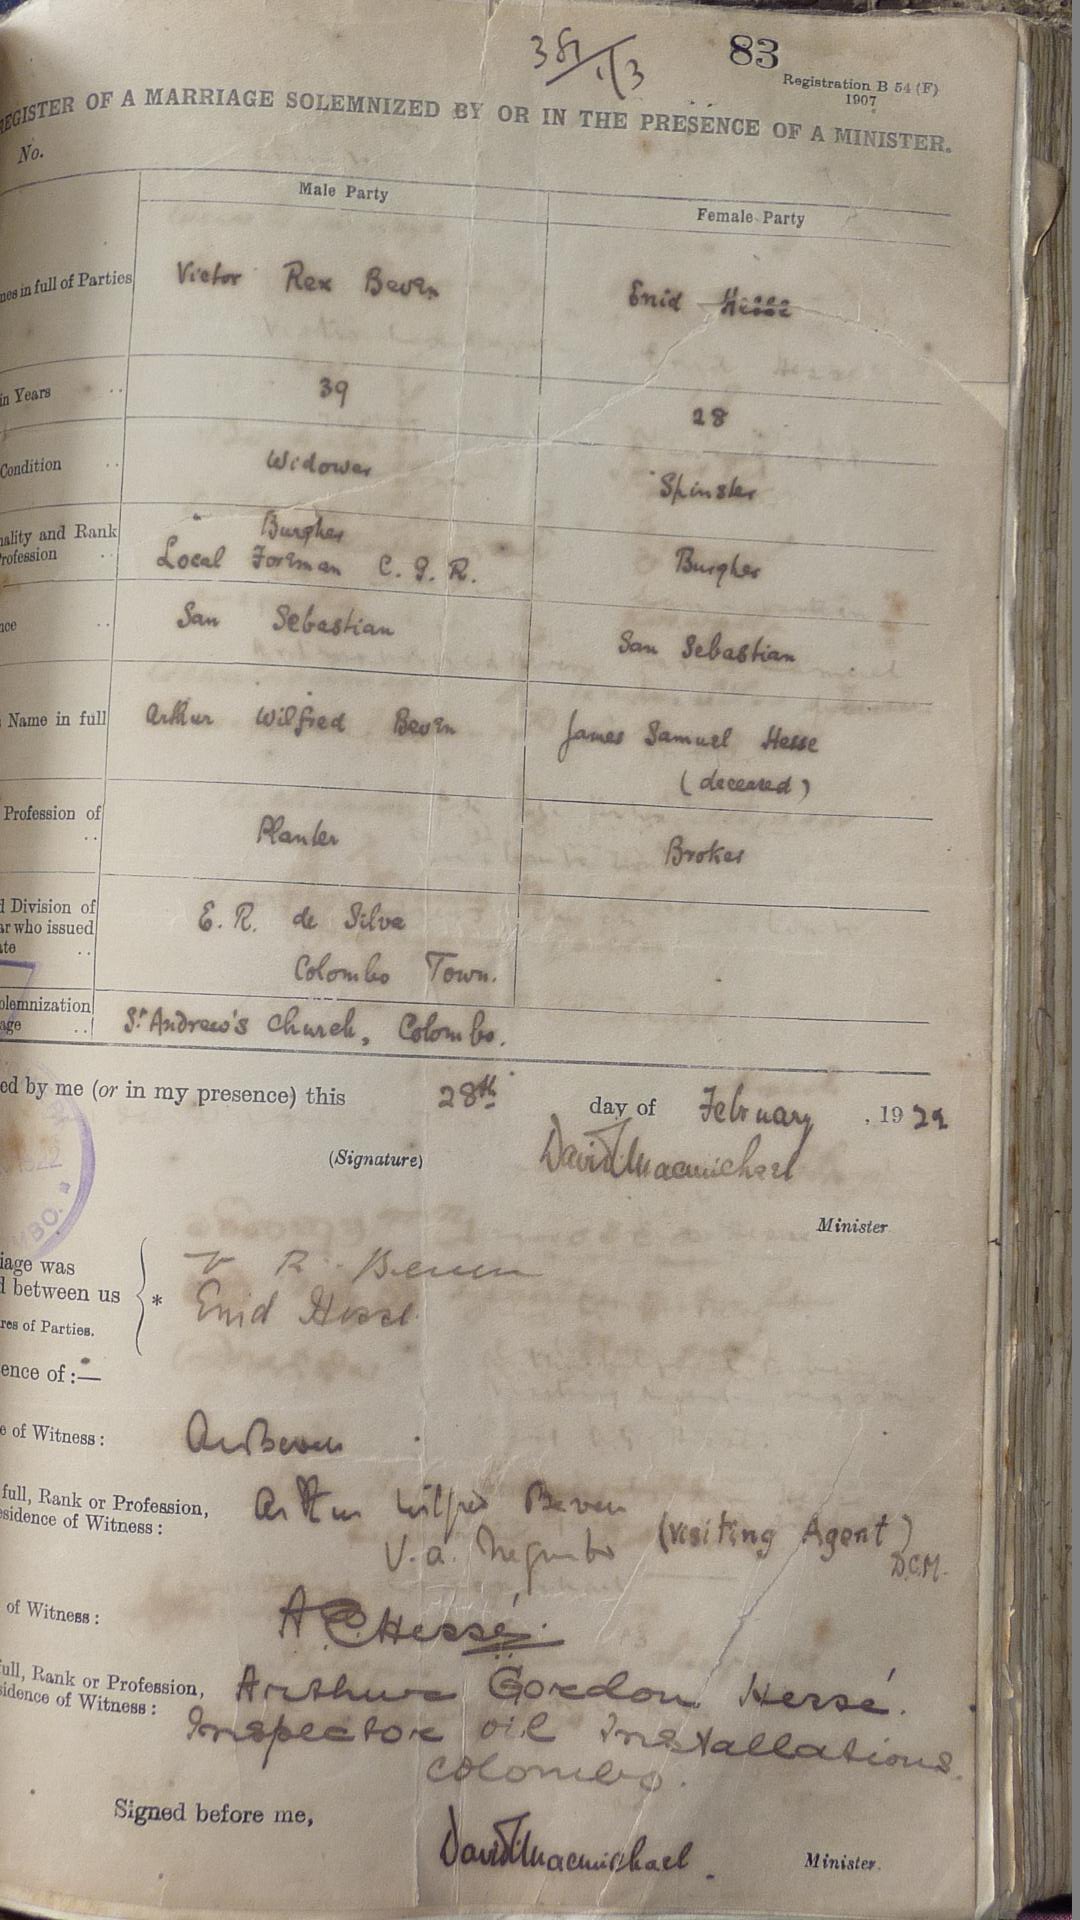 381/13
83
Registration B 54 (F)
1907
REGISTER OF A MARRIAGE SOLEMNIZED BY OR IN THE PRESENCE OF A MINISTER.
No.
Male Party
Female Party
mes in full of Parties
Victor Rex Beven
Enid Hesse
in Years
39
28
Condition
Widower
Spinster
nality and Rank
rofession
Burgher
Local Foreman C. G. R.
Burgher
nce
San Sebastian
San Sebastian
Name in full
Arthur Wilfred Beven
James Samuel Hesse
(deceased)
Profession of
Planter
Broker
d Division of
ar who issued
ate
E. R. de Silva
Colombo Town.
olemnization
age
St Andrew's Church, Colombo.
ed by me (or in my presence) this 28th day of February, 1922
(Signature) David Macmichael
Minister
iage was
d between us
res of Parties.
*
V R. Beven
Enid Hesse
ence of :—
e of Witness :
Beven
full, Rank or Profession,
esidence of Witness :
Arthur Wilfred Beven
V.a. Negombo (Visiting Agent)
D.C.M.
of Witness :
A G Hessé.
full, Rank or Profession,
sidence of Witness :
Arthur Gordon Hessé.
Inspector oil Installations.
Colombo.
Signed before me,
David Macmichael
Minister.